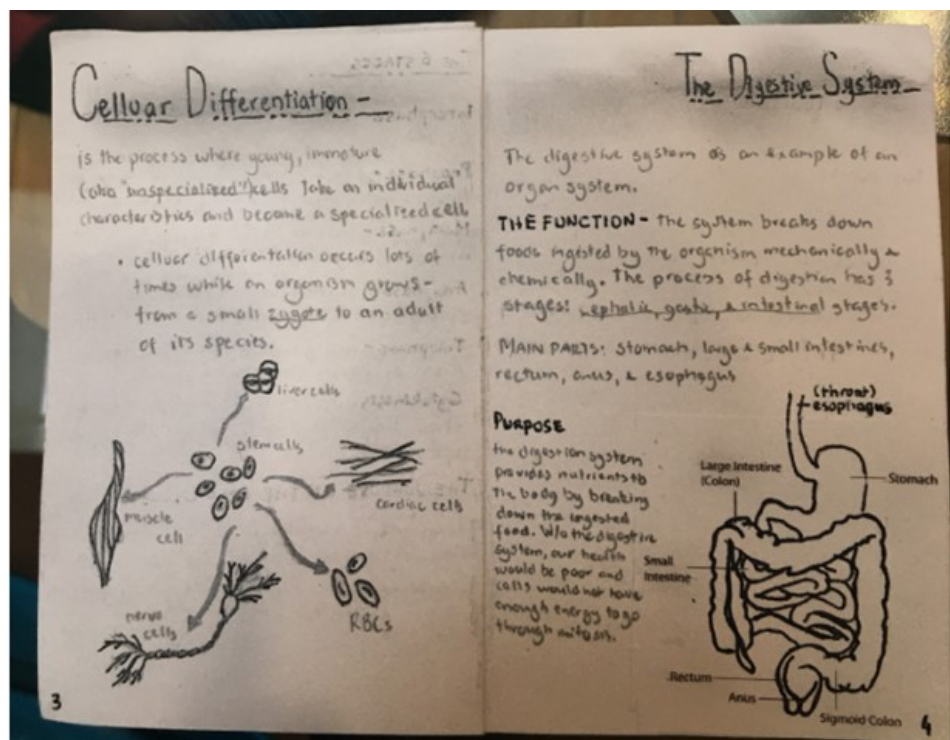 Celluar Differentiation -
is the process where young, immature
(aka "unspecialized") cells take on individual
characteristics and become a specialized cell
• celluar differentiation occurs lots of
times while an organism grows -
from a small zygote to an adult
of its species.
liver cells
stem cells
muscle
cell
cardiac cells
nerve
cells
RBCs
3
The Digestive System
The digestive system is an example of an
organ system.
THE FUNCTION - The system breaks down
foods ingested by the organism mechanically &
chemically. The process of digestion has 3
stages: cephalic, gastic, & intestinal stages.
MAIN PARTS: stomach, large & small intestines,
rectum, anus, & esophagus
PURPOSE
the digestion system
provides nutrients to
the body by breaking
down the ingested
food. W/o the digestive
system, our health
would be poor and
cells would not have
enough energy to go
through mitosis.
(throat)
esophagus
Large Intestine
(Colon)
Stomach
Small
Intestine
Rectum
Anus
Sigmoid Colon
4